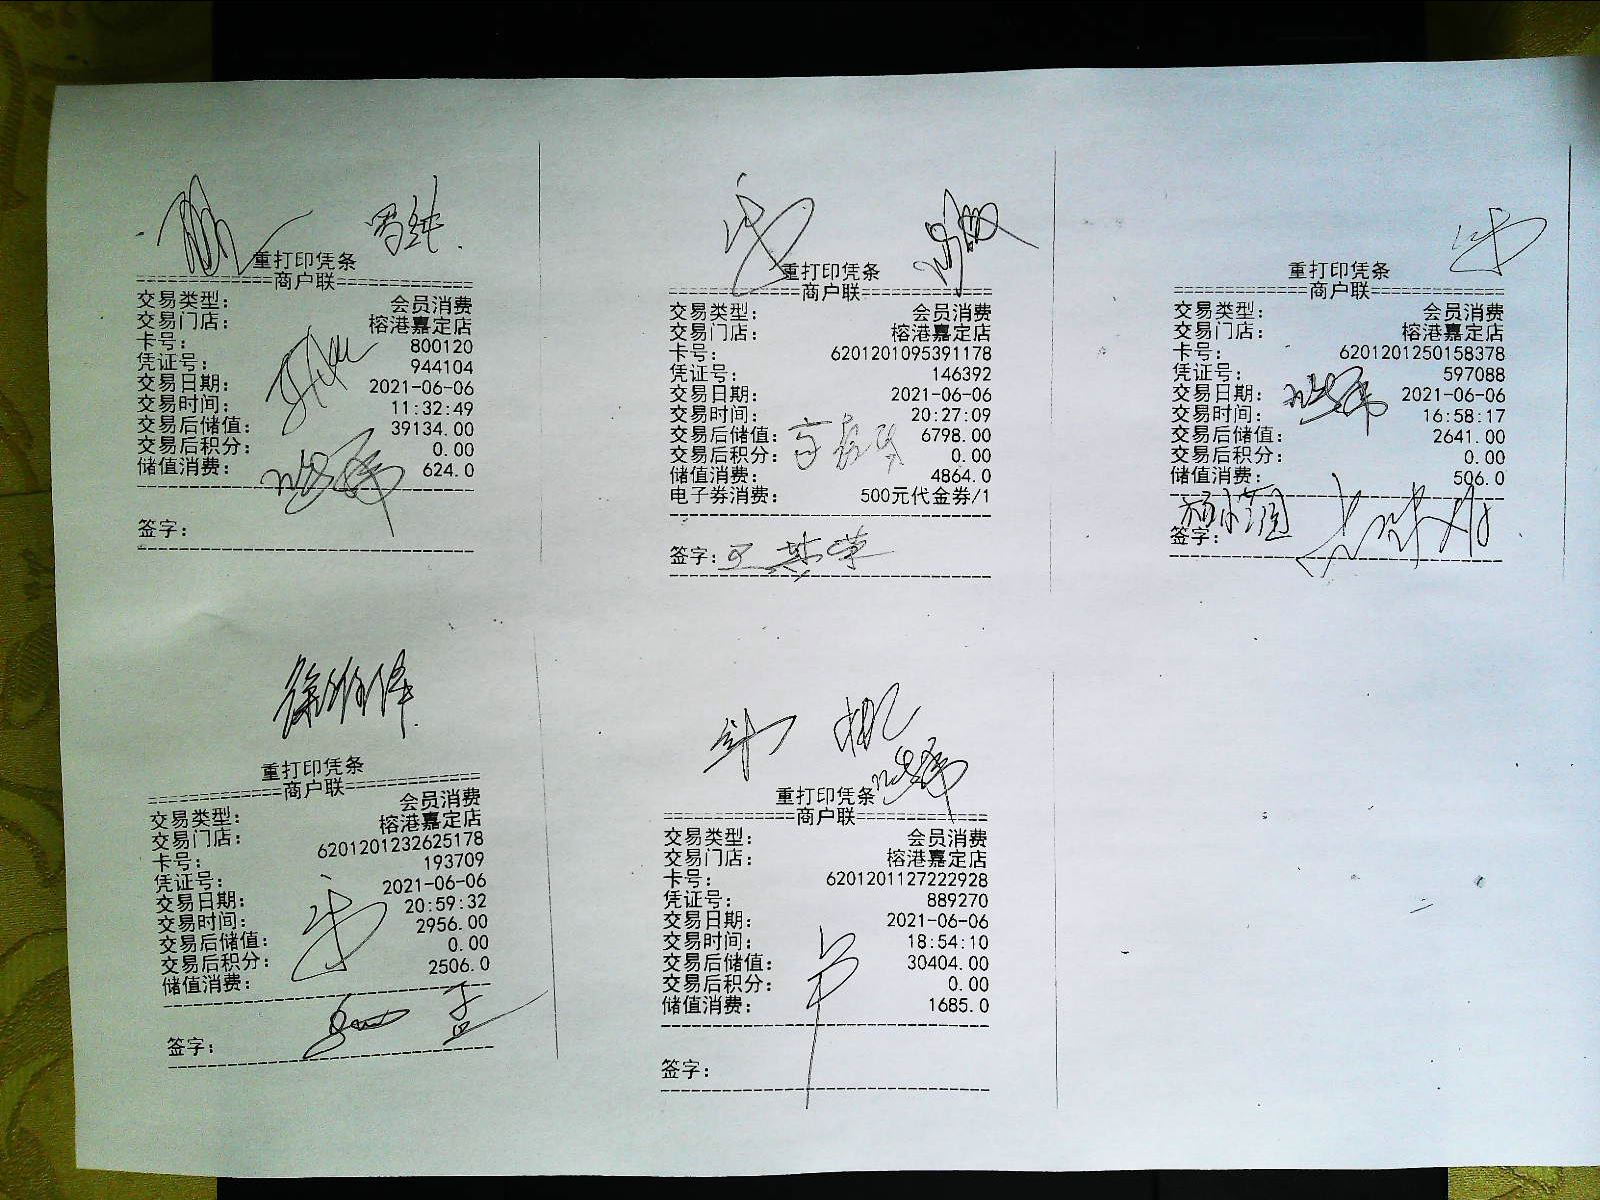 罗纯
重打印凭条
商户联
交易类型: 会员消费
交易门店: 榕港嘉定店
卡号: 800120
凭证号: 944104
交易日期: 2021-06-06
交易时间: 11:32:49
交易后储值: 39134.00
交易后积分: 0.00
储值消费: 624.0
签字:
重打印凭条
商户联
交易类型: 会员消费
交易门店: 榕港嘉定店
卡号: 6201201095391178
凭证号: 146392
交易日期: 2021-06-06
交易时间: 20:27:09
交易后储值: 6798.00
交易后积分: 0.00
储值消费: 4864.0
电子券消费: 500元代金券/1
签字:
重打印凭条
商户联
交易类型: 会员消费
交易门店: 榕港嘉定店
卡号: 6201201250158378
凭证号: 597088
交易日期: 2021-06-06
交易时间: 16:58:17
交易后储值: 2641.00
交易后积分: 0.00
储值消费: 506.0
签字:
徐维伟
重打印凭条
商户联
交易类型: 会员消费
交易门店: 榕港嘉定店
卡号: 6201201232625178
凭证号: 193709
交易日期: 2021-06-06
交易时间: 20:59:32
交易后储值: 2956.00
交易后积分: 0.00
储值消费: 2506.0
签字:
重打印凭条
商户联
交易类型: 会员消费
交易门店: 榕港嘉定店
卡号: 6201201127222928
凭证号: 889270
交易日期: 2021-06-06
交易时间: 18:54:10
交易后储值: 30404.00
交易后积分: 0.00
储值消费: 1685.0
签字: